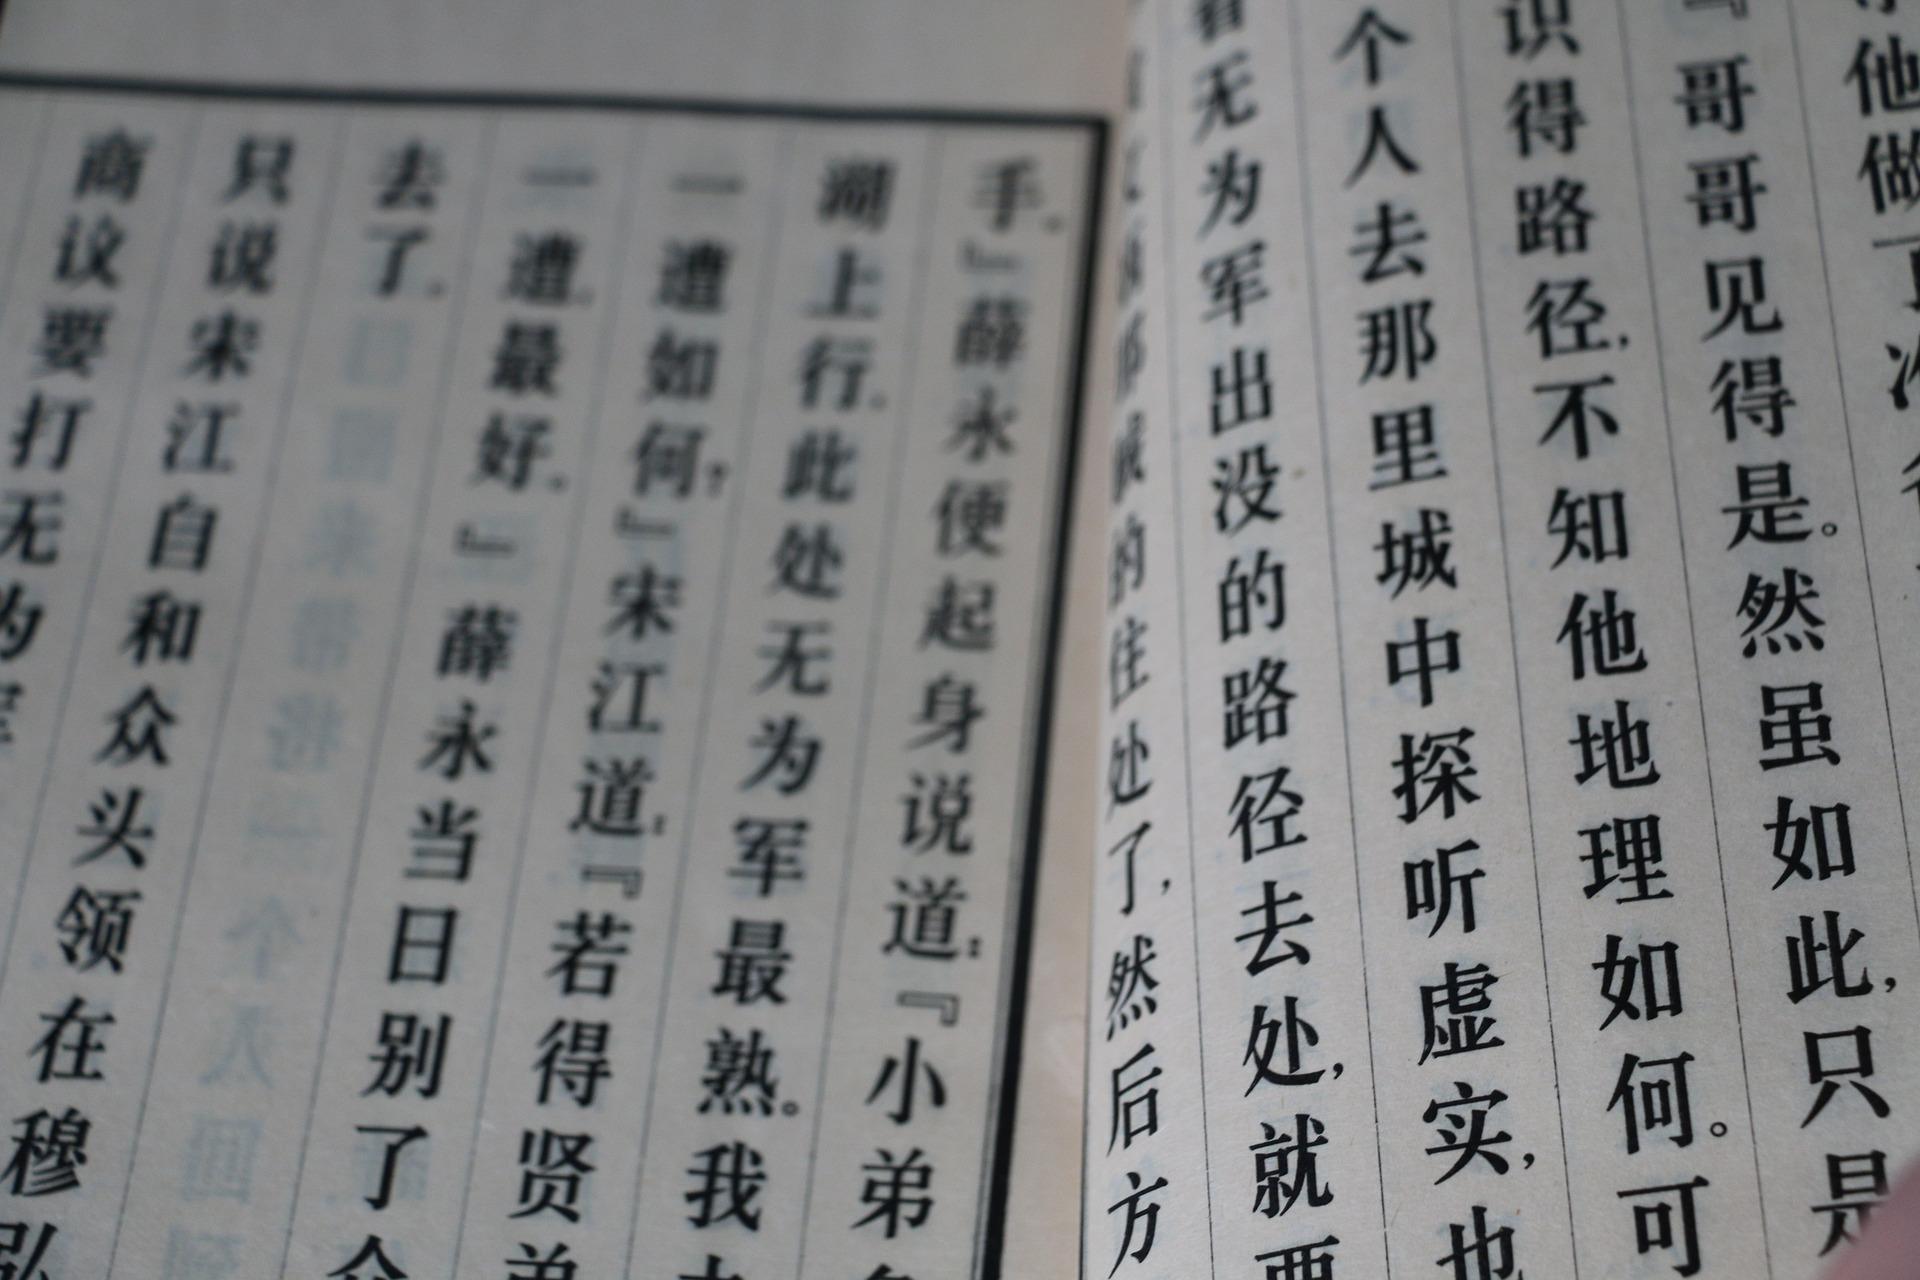 他做
『哥哥见得是。然虽如此，只是
识得路径，不知他地理如何。可
个人去那里城中探听虚实，也
看无为军出没的路径去处，就要
的住处了，然后方
手。』薛永便起身说道：『小弟
湖上行。此处无为军最熟。我
一遭如何？』宋江道：『若得贤弟
一遭，最好。』薛永当日别了
去了。
只说宋江自和众头领在穆弘
商议要打无为军